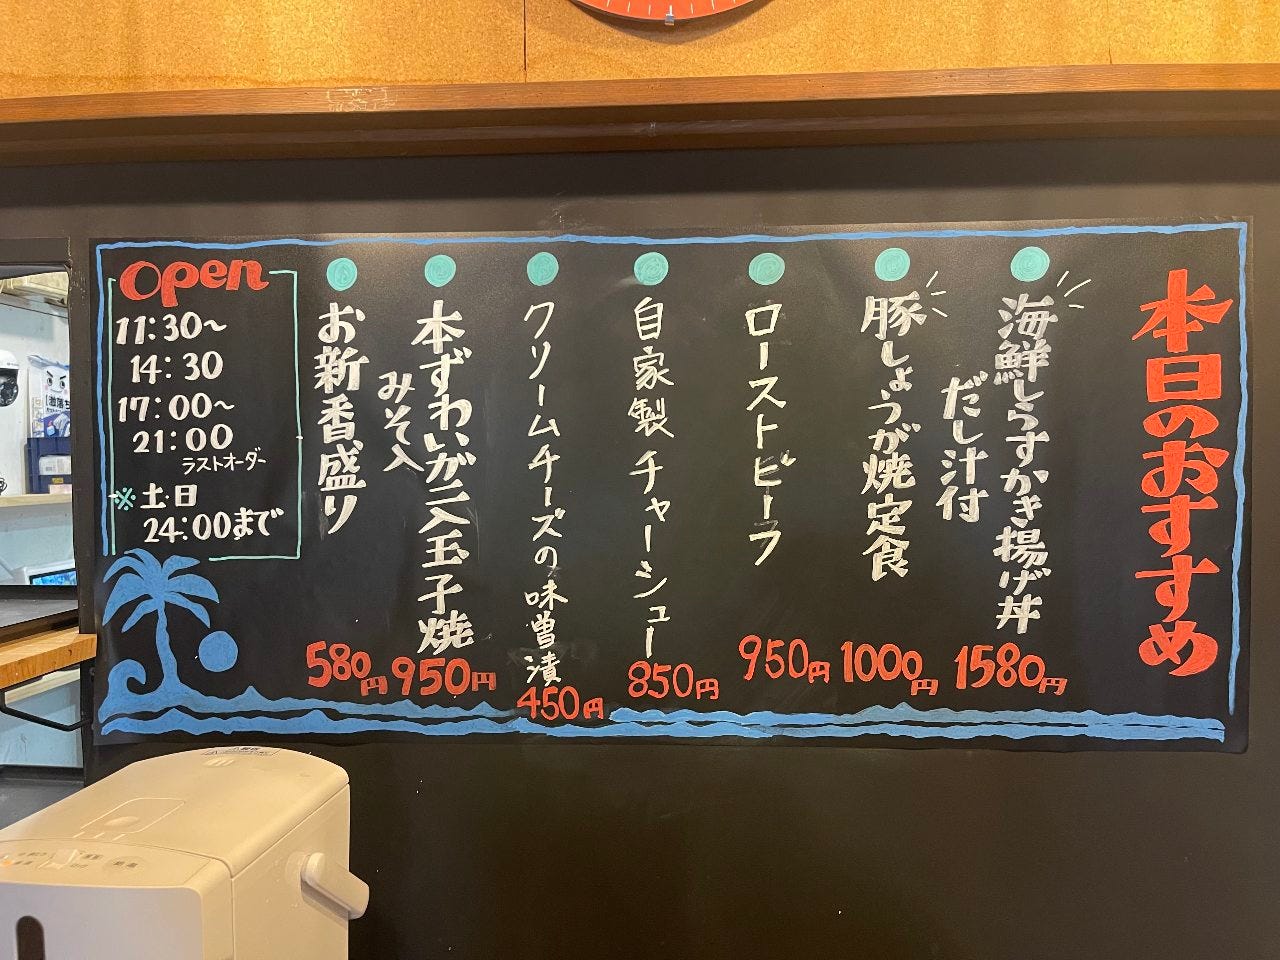 本日のおすすめ
海鮮しらすかき揚げ丼
だし汁付
1580円
豚しょうが焼定食
1000円
ローストビーフ
950円
自家製チャーシュー
850円
クリームチーズの味噌漬
450円
本ずわいガニ入玉子焼
みそ入
950円
お新香盛り
580円
Open
11:30〜
14:30
17:00〜
21:00
ラストオーダー
※土・日
24:00まで